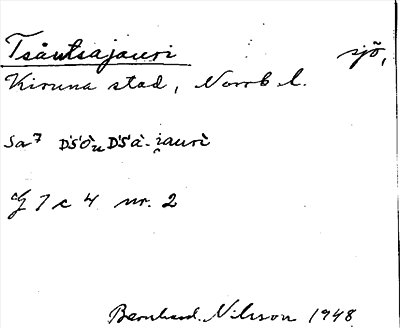 Tsåutsajauri sjö,
Kiruna stad, Norrb. l.
Sa7
G 7 c 4 nr. 2
Bernhard Nilsson 1948